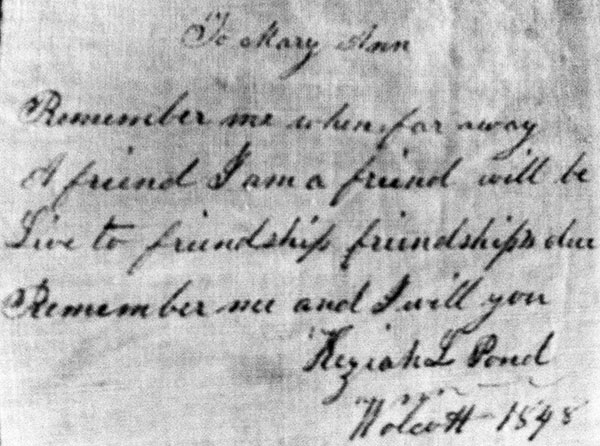 To Mary Ann
Remember me when far away
A friend I am a friend will be
Live to friendship friendships due
Remember me and I will you
Keziah L Pond
Wolcott 1848